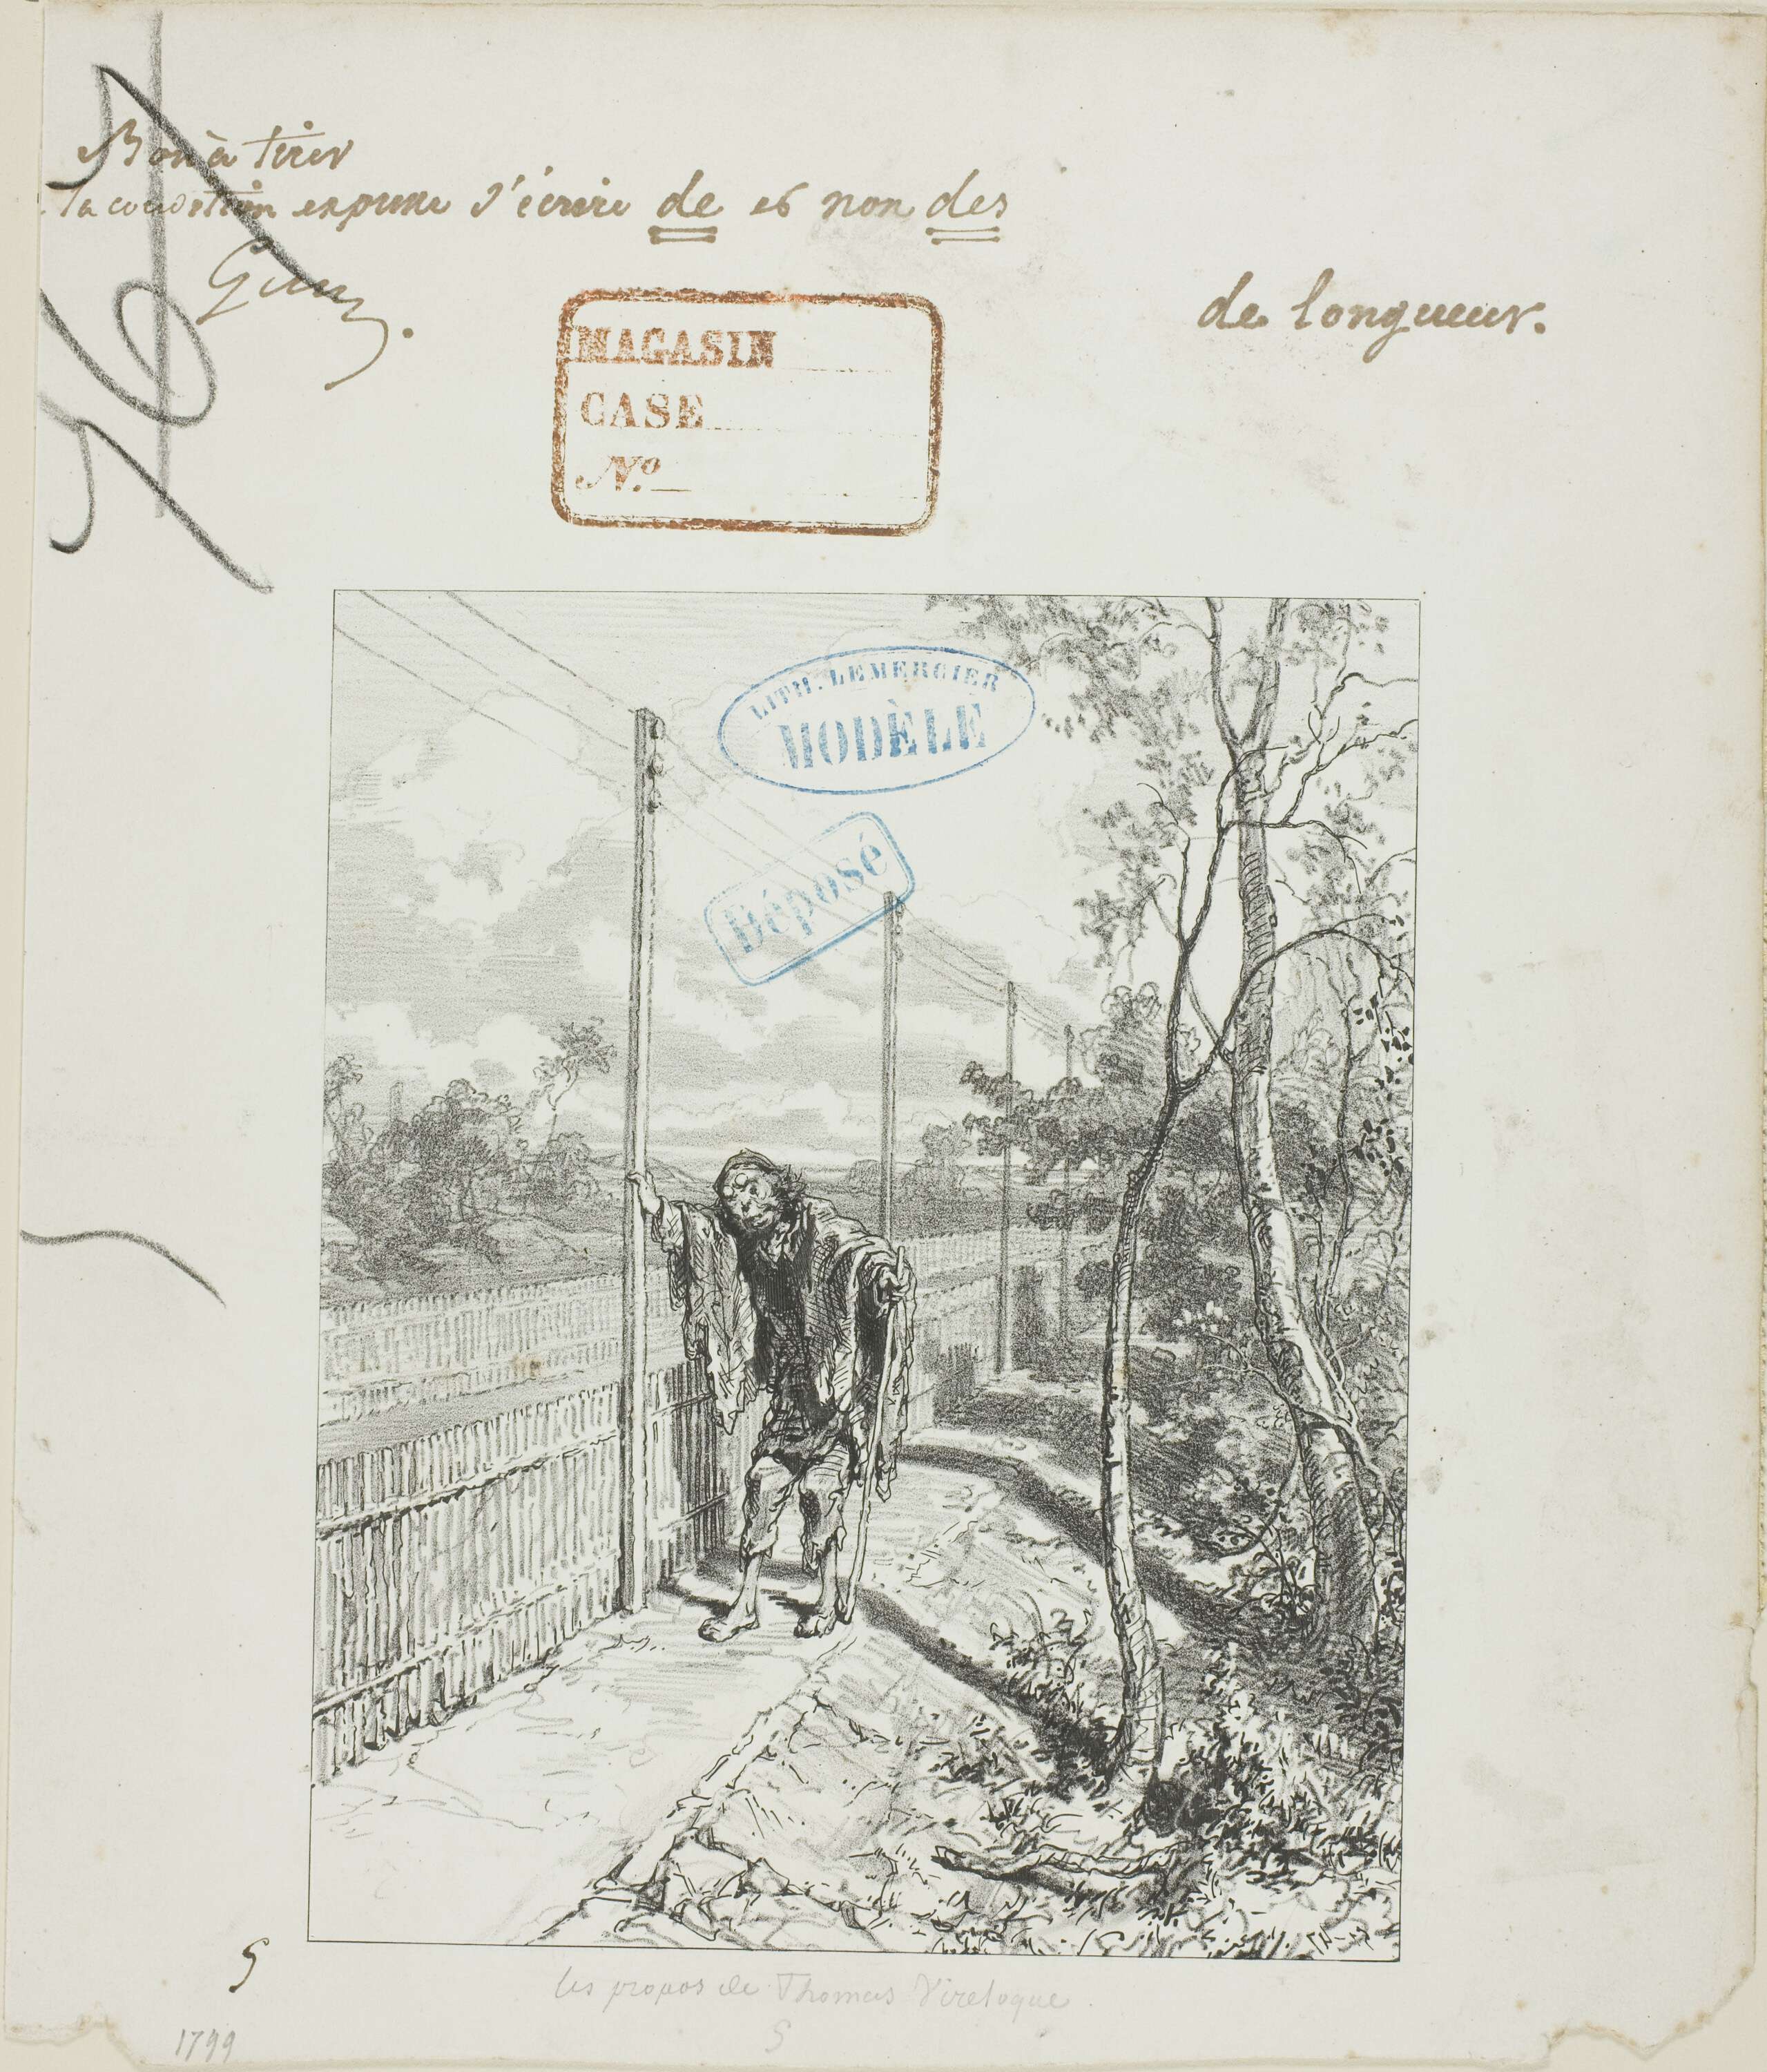 Bon à tirer
la condition expresse d'écrire de et non des
Gav.
de longueur.
MAGASIN
CASE
N.º
LITH. LEMERCIER
MODÈLE
Déposé
les propos de Thomas Vireloque.
5
1799